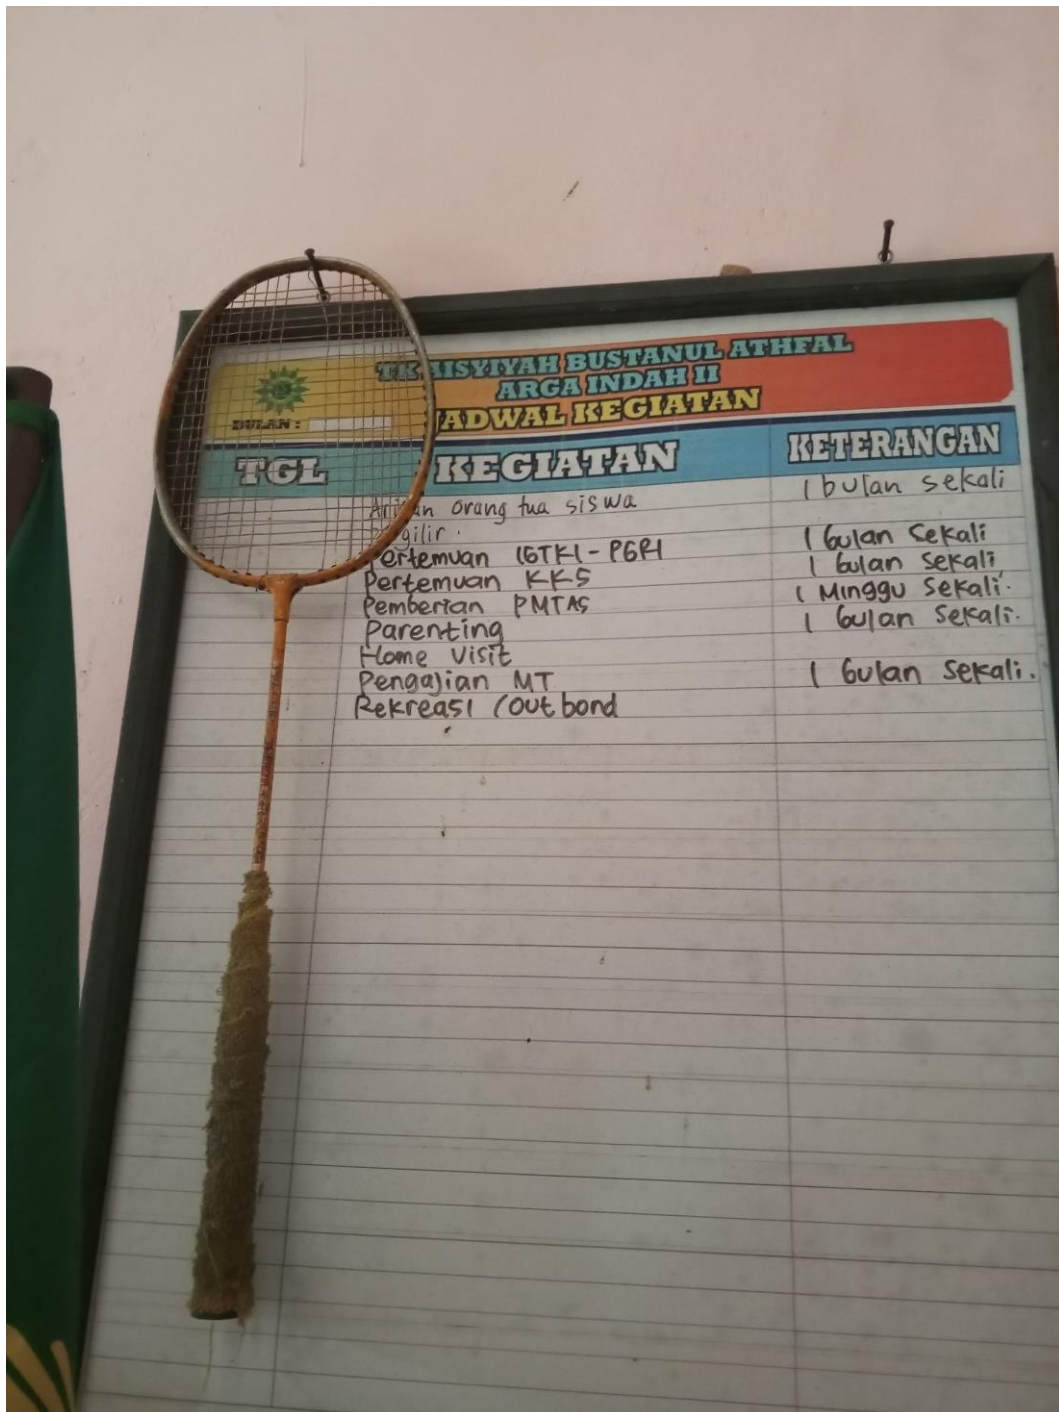 TK AISYIYAH BUSTANUL ATHFAL
ARGA INDAH II
JADWAL KEGIATAN
BULAN :
TGL KEGIATAN KETERANGAN
orang tua siswa 1 bulan sekali
Pertemuan IGTKI-PGRI 1 bulan Sekali
Pertemuan KKS 1 bulan Sekali
Pemberian PMTAS 1 Minggu Sekali.
Parenting 1 bulan Sekali.
Home Visit
Pengajian MT 1 bulan Sekali.
Rekreasi /Outbond